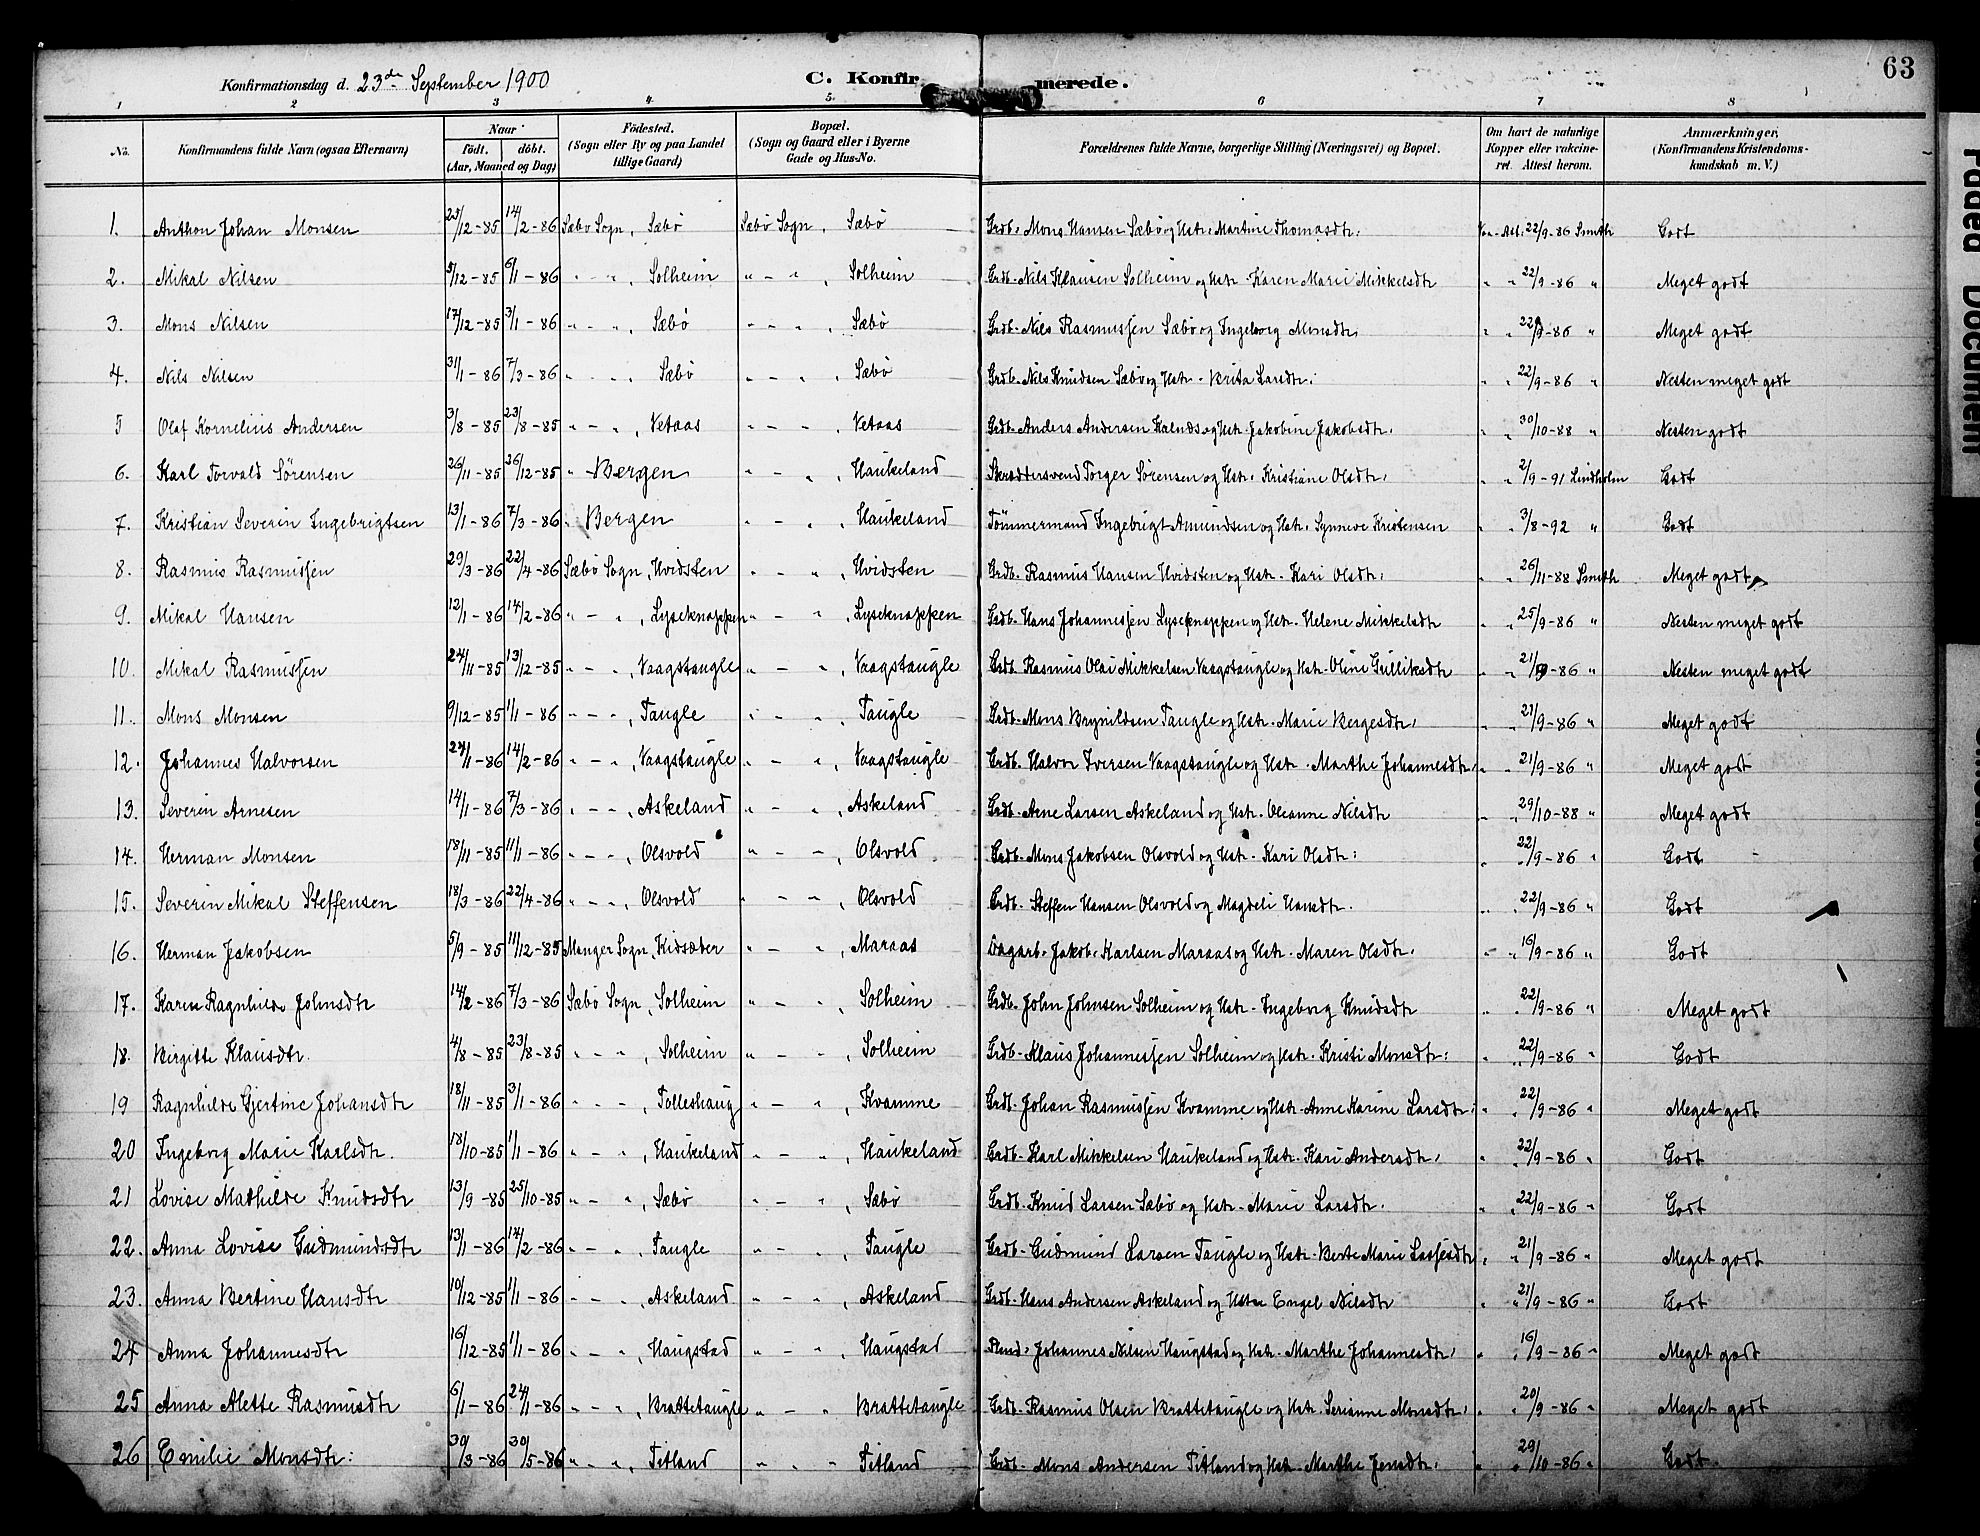 63
Konfirmationsdag d. 23de September 1900 C. Konfirmerede.
1 2 3 4. 5. 6 7 8
No. Konfirmandens fulde Navn (ogsaa Efternavn) Naar født. døbt. (Aar, Maaned og Dag) Födested. (Sogn eller By og paa Landet tillige Gaard) Bopæl. (Sogn og Gaard eller i Byerne Gade og Hus-No. Forældrenes fulde Navne, borgerlige Stilling (Næringsvei) og Bopæl. Om havt de naturlige Kopper eller vakcineret Attest herom. Anmærkninger. (Konfirmandens Kristendomskundskab m. V.)
1. Anthon Johan Monsen 23/12-85 14/2-86 Sæbø Sogn, Sæbø Sæbø Sogn, Sæbø Grdb. Mons Hansen Sæbø og Hstr. Martine Thomasdtr. Att. 22/9-86 Smith Godt
2. Mikal Nilsen 5/12-85 6/1-86 " - ", Solheim " - ", Solheim Grdb. Nils Klausen Solheim og Hstr. Karen Marie Mikkelsdtr " " 22/9-86 " Meget godt
3. Mons Nilsen 17/12-85 3/1-86 " - ", Sæbø " - ", Sæbø Grdb. Nils Rasmussen Sæbø og Ingeborg Monsdtr. " " 22/9-86 " Meget godt
4. Nils Nilsen 31/1-86 7/3-86 " - ", Sæbø " - ", Sæbø Grdb. Nils Knudsen Sæbø og Hstr. Brita Larsdtr. " " 22/9-86 " Nesten meget godt
5 Olaf Kornelius Andersen 3/8-85 23/8-85 " - ", Vetaas " - " Vetaas Grdb. Anders Andersen Kalnæs og Hstr. Jakobine Jakobsdtr. " " 30/10-88 " Nesten godt
6. Karl Torvald Sørensen 26/11-85 26/12-85 " Bergen " - ", Haukeland Skræddersvend Torger Sørensen og Hstr. Kristiane Olsdtr. " " 2/9-91 Lindholm Godt
7. Kristian Severin Ingebrigtsen 13/1-86 7/3-86 " Bergen " - ", Haukeland Tømmermand Ingebrigt Amundsen og Hstr. Synneve Kristensen " " 3/8-92 " Godt
8. Rasmus Rasmussen 29/3-86 22/4-86 Sæbø Sogn, Hvidsten " - " Hvidsten Grdb. Rasmus Hansen Hvidsten og Hstr. Kari Olsdtr. " " 26/11-88 Smith Meget godt
9. Mikal Hansen 12/1-86 14/2-86 " - ", Lyseknappen " - ", Lyseknappen Grdb. Hans Johannessen Lyseknappen og Hstr. Helene Mikkelsdtr " " 25/9-86 " Nesten meget godt
10. Mikal Rasmussen 24/11-85 13/12-85 " - ", Vaagstaugle " - ", Vaagstaugle Grdb. Rasmus Olai Mikkelsen Vaagstaugle og Hstr. Oline Gulliksdtr " " 21/9-86 " Nesten meget godt
11. Mons Monsen 9/12-85 1/1-86 " - ", Taugle " - ", Taugle Grdb. Mons Brynildsen Taugle og Hstr. Marie Bergesdtr. " " 21/9-86 " Meget godt
12. Johannes Halvorsen 24/1-86 14/2-86 " - ", Vaagstaugle " - ", Vaagstaugle Grdb. Halvor Iversen Vaagstaugle og Hstr. Marthe Johannesdtr. " " 21/9-86 " Meget godt
13. Severin Arnesen 14/1-86 7/3-86 " - ", Askeland " - ", Askeland Grdb. Arne Larsen Askeland og Hstr. Oleanne Nilsdtr " " 29/10-88 " Meget godt
14. Herman Monsen 18/11-85 11/1-86 " - ", Olsvold " - ", Olsvold Grdb. Mons Jakobsen Olsvold og Hstr. Kari Olsdtr. " " 22/9-86 " Godt
15. Severin Mikal Steffensen 18/3-86 22/4-86 " - ", Olsvold " - ", Olsvold Grdb. Steffen Hansen Olsvold og Magdeli Hansdtr. " " 22/9-86 " Godt
16. Herman Jakobsen 5/9-85 11/12-85 Manger Sogn, Kidsæter " - ", Maraas Dagarb. Jakob Karlsen Maraas og Hstr. Maren Olsdtr. " " 16/9-86 " Godt
17. Karen Ragnhild Johnsdtr 14/2-86 7/3-86 Sæbø Sogn, Solheim " - ", Solheim Grdb. John Johnsen Solheim og Hstr. Ingeborg Knudsdtr " " 22/9-86 " Meget godt
18. Birgitte Klausdtr. 4/8-85 23/8-85 " - ", Solheim " - ", Solheim Grdb. Klaus Johannessen Solheim og Hstr. Kristi Monsdtr. " " 22/9-86 " Godt
19 Ragnhilde Gjertine Johansdtr 18/11-85 3/1-86 " - ", Tolleshaug " - ", Kvamme Grdb. Johan Rasmussen Kvamme og Hstr. Anne Karine Larsdtr. " " 22/9-86 " Meget godt
20 Ingeborg Marie Karlsdtr. 18/10-85 1/1-86 " - ", Haukeland " - ", Haukeland Grdb. Karl Mikkelsen Haukeland og Hstr. Kari Andersdtr. " " 22/9-86 " Godt
21 Lovise Mathilde Knudsdtr 13/9-85 25/10-85 " - " Sæbø " - " Sæbø Grdb. Knud Larsen Sæbø og Hstr. Marie Larsdtr. " " 22/9-86 " Godt
22. Anna Lovise Gudmundsdtr 13/1-86 14/2-86 " - ", Taugle " - ", Taugle Grdb. Gudmund Larsen Taugle og Hstr. Berte Marie Lassesdtr " " 21/9-86 " Meget godt
23. Anna Bertine Hansdtr 10/12-85 1/1-86 " - ", Askeland " - ", Askeland Grdb. Hans Andersen Askeland og Hstr Engel Nilsdtr " " 21/9-86 " Godt
24 Anna Johannesdtr 16/12-85 1/1-86 " - ", Haugstad " - ", Haugstad Johannes Nilsen Haugstad og Hstr. Marthe Johannesdtr. " " 16/9-86 " Meget godt
25 Anna Alette Rasmusdtr 6/1-86 24/1-86 " - ", Brattetaugle " - " Brattetaugle Grdb. Rasmus Olsen Brattetaugle og Hstr. Serianne Monsdtr. " " 20/9-86 " Meget godt
26 Emilie Monsdtr: 30/3-86 30/5-86 " - ", Titland " - " Titland Grdb. Mons Andersen Titland og Hstr. Marthe Jensdtr. " " 29/10-86 " Godt.
Faded Document